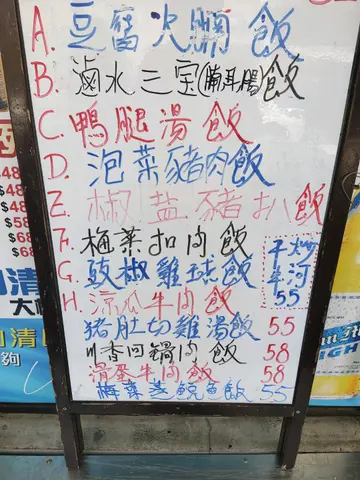 A. 豆腐火腩飯
B. 滷水三宝(腩耳腸)飯
C. 鴨腿湯飯
D. 泡菜豬肉飯
E. 椒盐豬扒飯
F. 梅菜扣肉飯
G. 豉椒雞球飯
H. 涼瓜牛肉飯
干炒牛河
55
猪肚切雞湯飯 55
川香回鍋肉飯 58
滑蛋牛肉飯 58
梅菜蒸鯇魚飯 55
$48
$48
$58
$68
$68
清
夠